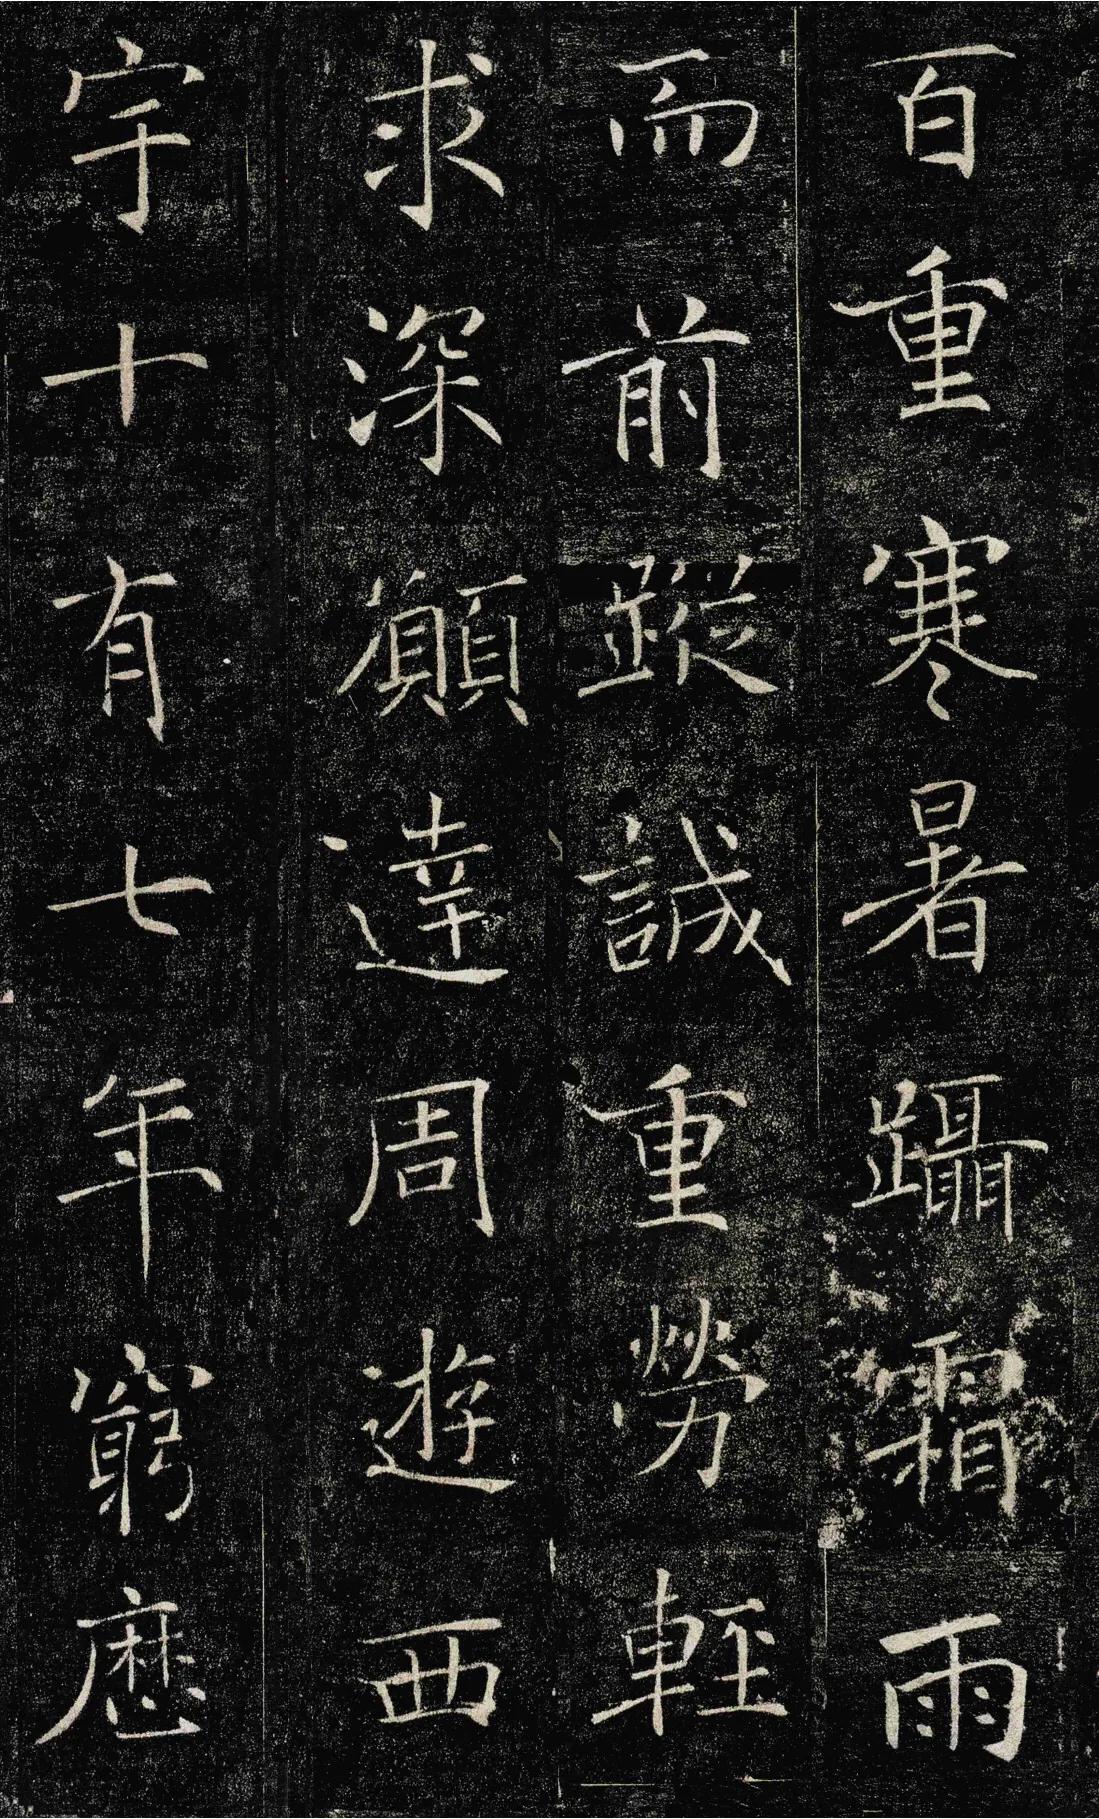 百重寒暑躡霜雨
而前蹤誠重勞輕
求深願達周遊西
宇十有七年窮歷